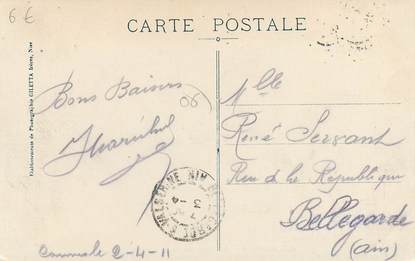 6€
CARTE POSTALE
Etablissements de Photographie GILETTA frères, Nice
Bons Baisers
06
Mlle
René Servant
Rue de la République
Bellegarde
(ain)
2-4-11